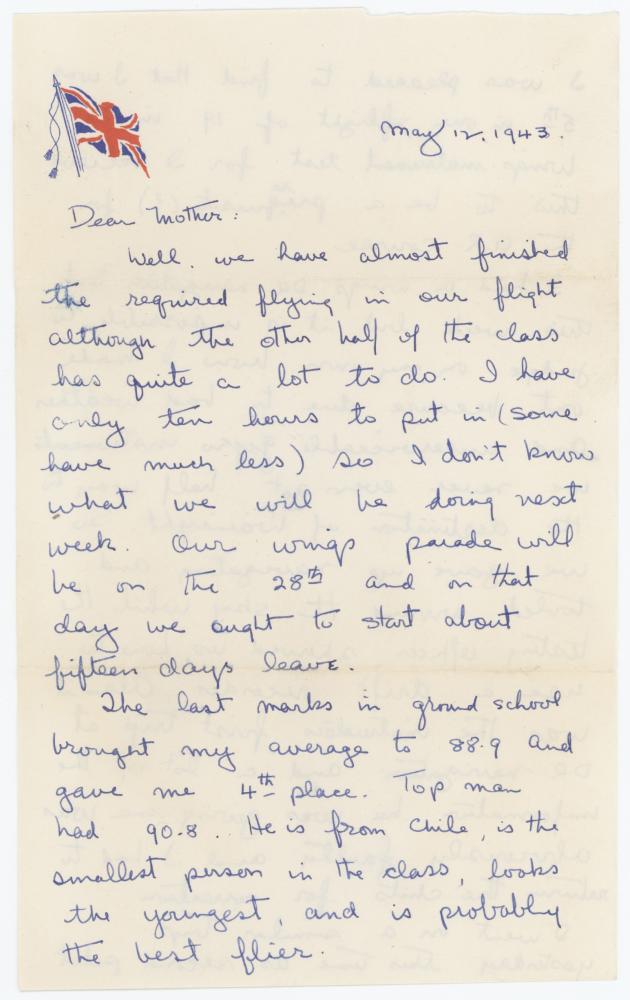 May 12, 1943.
Dear Mother:
Well we have almost finished
the required flying in our flight
although the other half of the class
has quite a lot to do. I have
only ten hours to put in (some
have much less) so I don't know
what we will be doing next
week. Our wings parade will
be on the 28th and on that
day we ought to start about
fifteen days leave.
The last marks in ground school
brought my average to 88.9 and
gave me 4th place. Top man
had 90.8.. He is from Chile, is the
smallest person in the class, looks
the youngest, and is probably
the best flier.